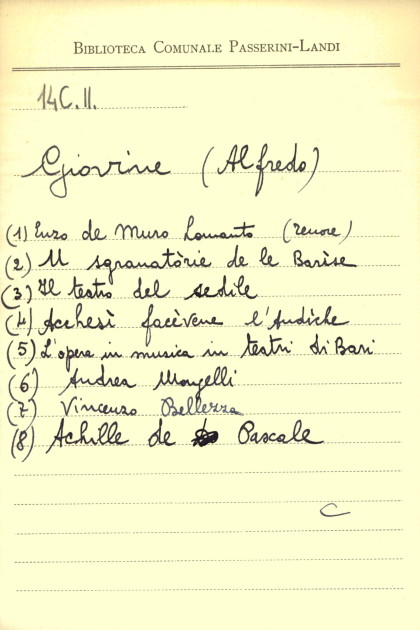 BIBLIOTECA COMUNALE PASSERINI-LANDI
14C.II.
Giovine (Alfredo)
(1) Enzo de Muro Lomanto (tenore)
(2) U sgranatòrie de le Barìse
(3) Il teatro del sedile
(4) Acchesì facèvene l'Andìche
(5) L'opera in musica in teatri di Bari
(6) Andrea
(7) Vincenzo Bellezza
(8) Achille de Pascale
C